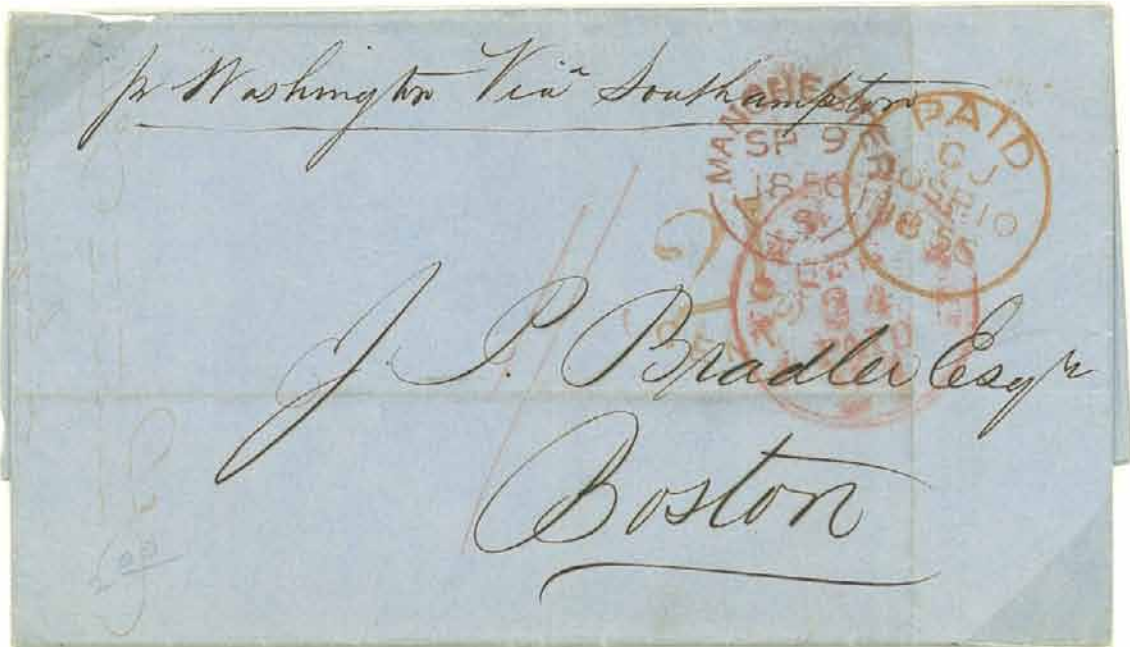 pr Washington Via Southampton
MANCHESTER
SP 9
1856
PAID
CJ
10SP10
1856
21
24
J. P. Bradlee Esqr
Boston